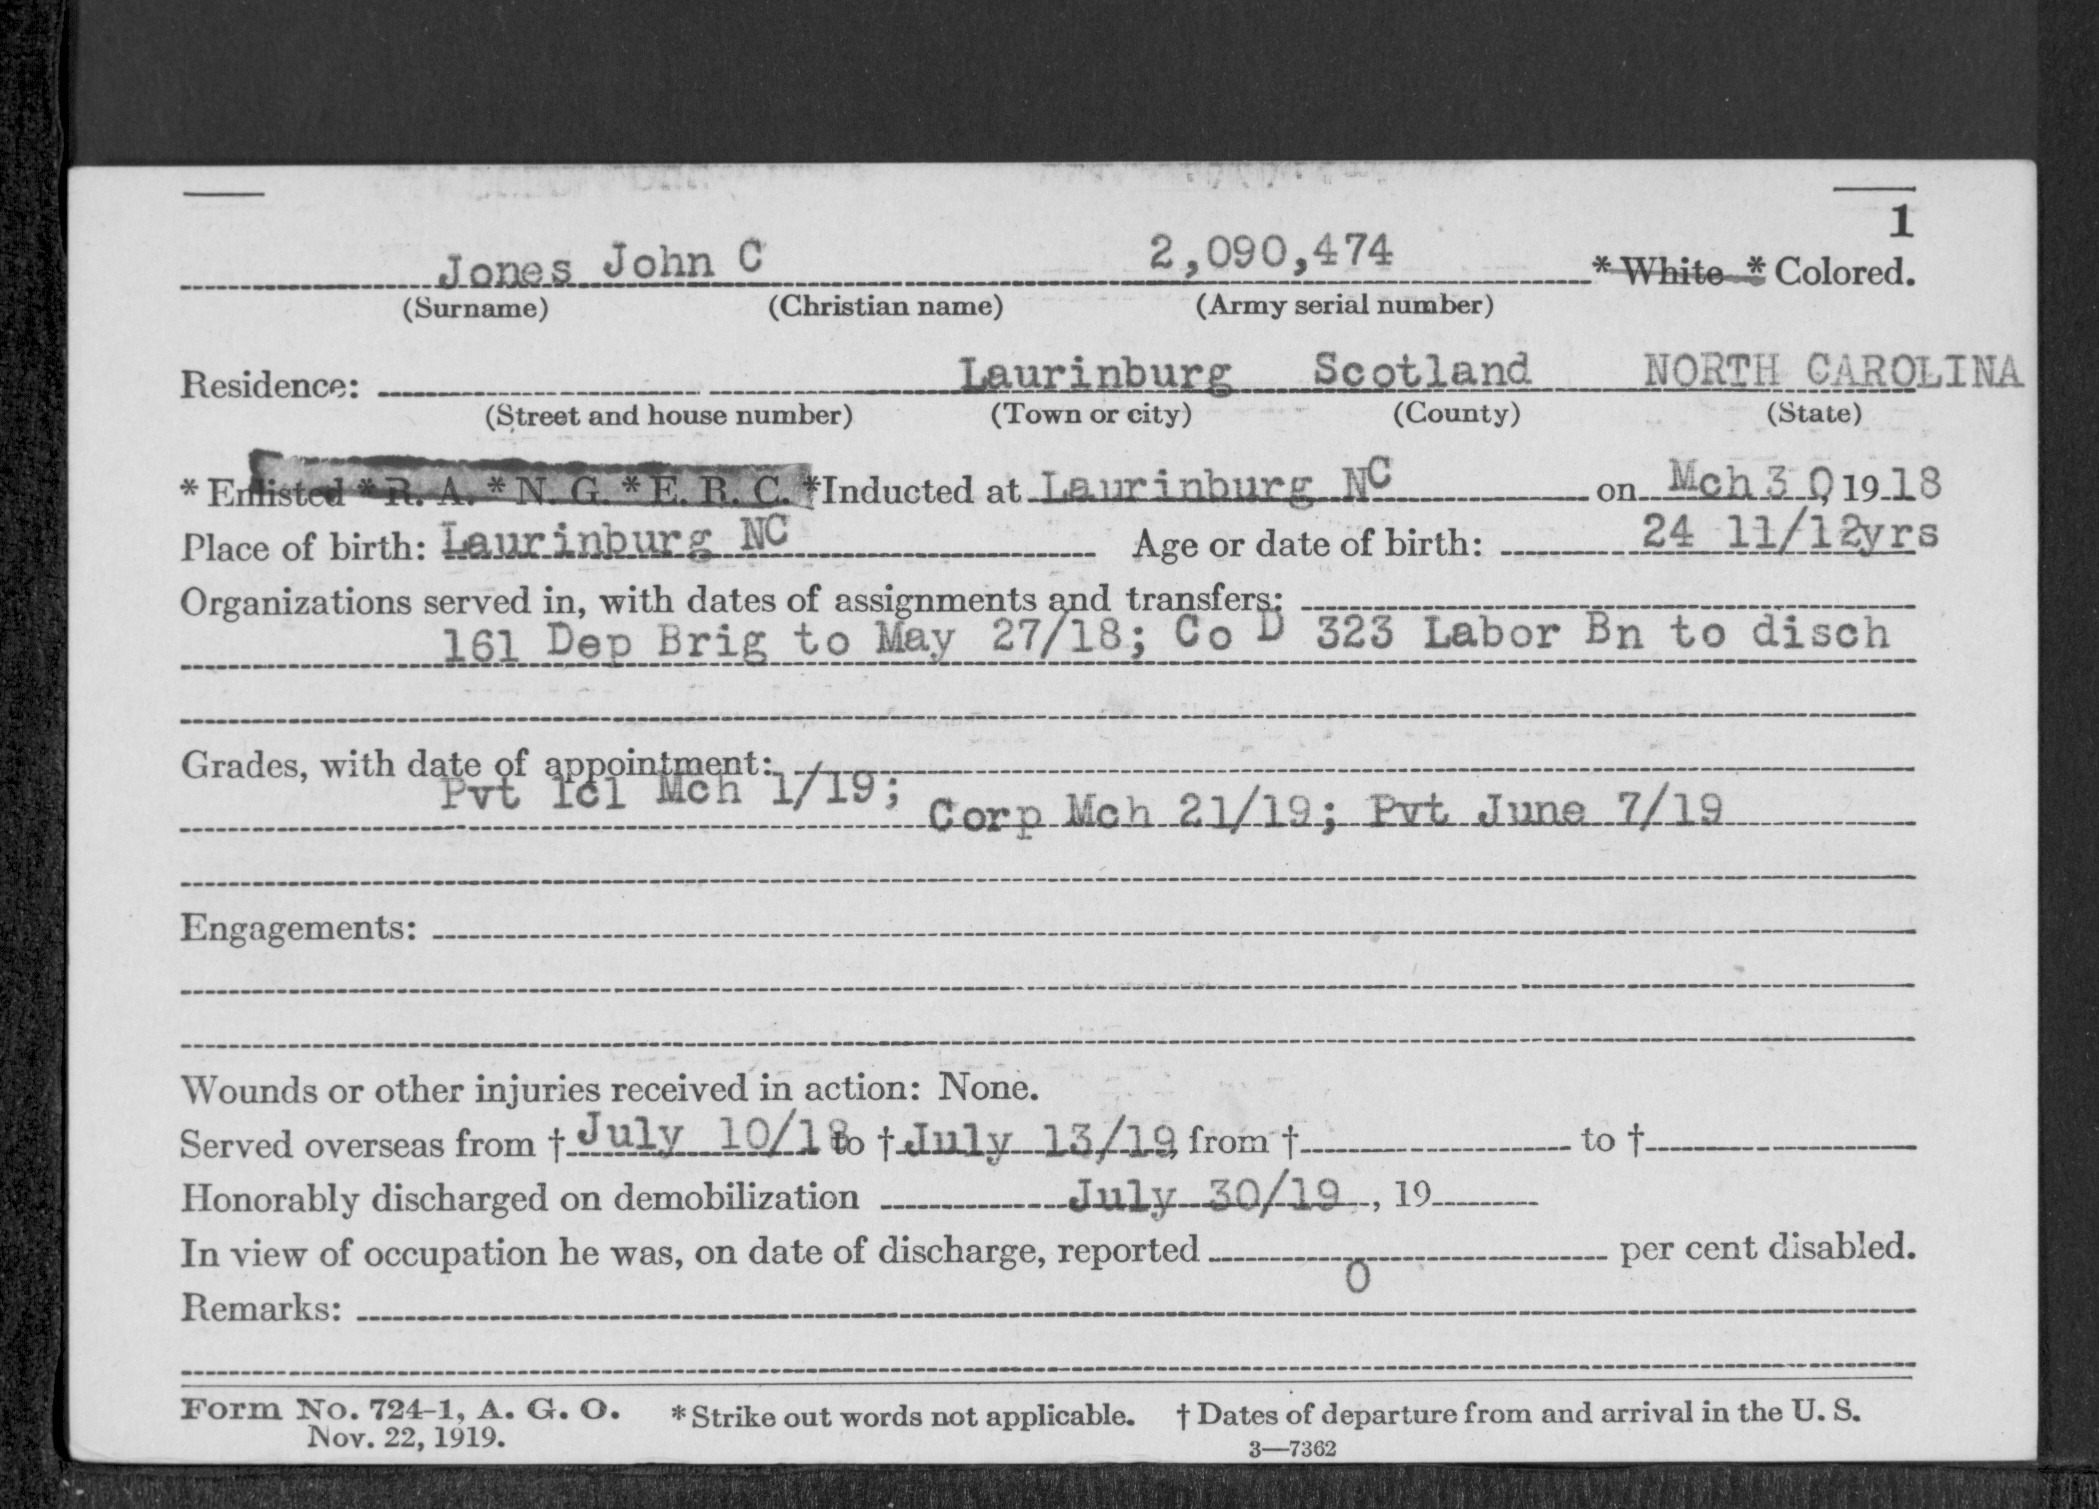 1
Jones John C 2,090,474 * White * Colored.
(Surname) (Christian name) (Army serial number)
Residence: Laurinburg Scotland NORTH CAROLINA
(Street and house number) (Town or city) (County) (State)
* Enlisted * R. A. * N. G. * E. R. C. *Inducted at Laurinburg NC on Mch 30, 1918
Place of birth: Laurinburg NC Age or date of birth: 24 11/12yrs
Organizations served in, with dates of assignments and transfers:
161 Dep Brig to May 27/18; Co D 323 Labor Bn to disch
Grades, with date of appointment:
Pvt 1cl Mch 1/19; Corp Mch 21/19; Pvt June 7/19
Engagements:
Wounds or other injuries received in action: None.
Served overseas from † July 10/18 to † July 13/19, from † to †
Honorably discharged on demobilization July 30/19, 19
In view of occupation he was, on date of discharge, reported 0 per cent disabled.
Remarks:
Form No. 724-1, A. G. O. * Strike out words not applicable. † Dates of departure from and arrival in the U. S.
Nov. 22, 1919. 3—7362